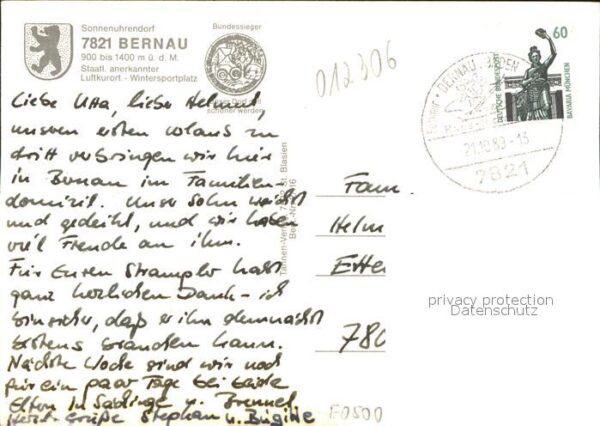 Sonnenuhrendorf
7821 BERNAU
900 bis 1400 m ü. d. M.
Staatl. anerkannter
Luftkurort - Wintersportplatz
Bundessieger
Unser Dorf soll
schöner werden
012306
60
DEUTSCHE BUNDESPOST
BAVARIA MÜNCHEN
BERNAU, BADEN
21.10.89-15
7821
Liebe Utta, lieber Helmut,
unseren ersten Urlaub zu
dritt verbringen wir hier
in Bernau im Familien-
domizil. Unser Sohn wächst
und gedeiht, und wir haben
viel Freude an ihm.
Für Euren Strampler habt
ganz herzlichen Dank - ich
bin sicher, daß er ihn demnächst
bestens brauchen kann.
Nächste Woche sind wir noch
für ein paar Tage bei beide
Eltern in u.
Herzl. Grüße Stephan u. Brigitte
St. Blasien
Fam.
Helm
Ette
780
privacy protection
Datenschutz
E0500